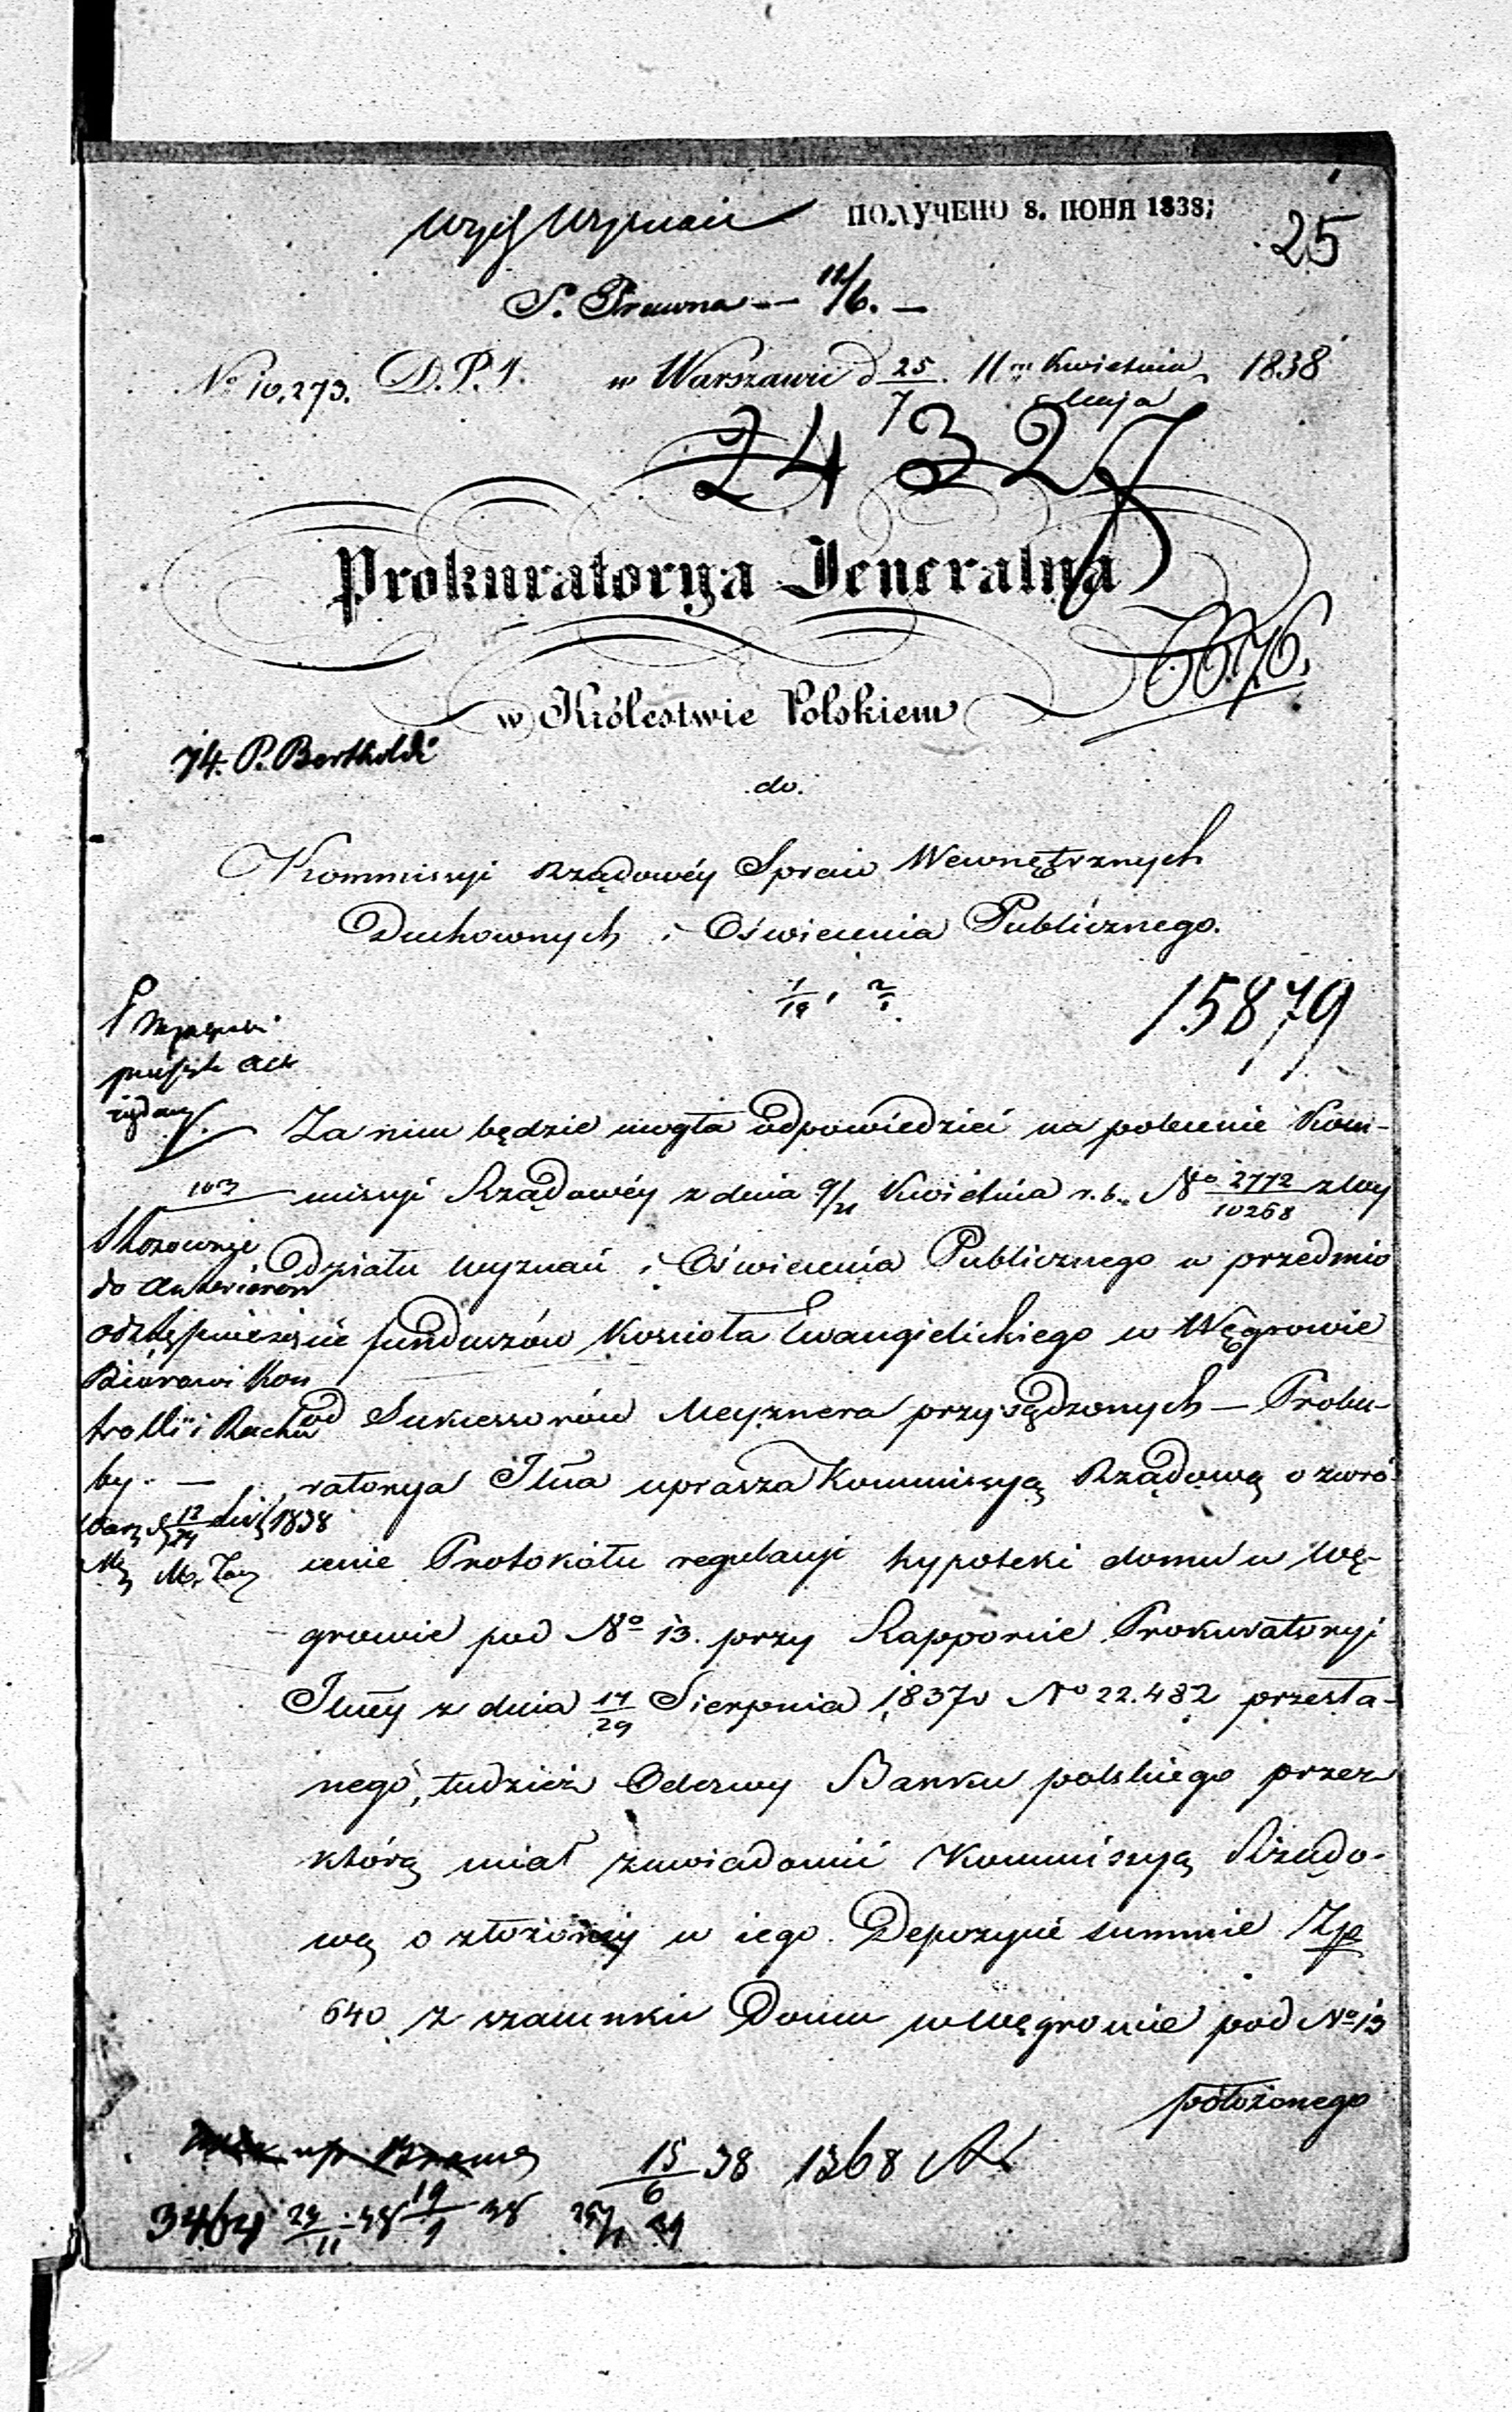 Wydz Wyznań ПОЛУЧЕНО 8. ІЮНЯ 1838;
25
S. Prawna — 12/6. —
No 10,273. D.P.1. w Warszawie d 25/7 Kwietnia/Maja 1838
24327
Prokuratorya Jeneralna
6676.
w Królestwie Polskiem
74. P. Bertholdi
do.
Kommissyi Rządowéy Spraw Wewnętrznych
Duchownych i Oświecenia Publicznego.
15879
Za nim będzie mogła odpowiedzieć na polecenie Kom-
103
missyi Rządowéy z dnia 9/21 Kwietnia r. b. No 2772/10268 z Wy
Stosownie
działu Wyznań i Oświecenia Publicznego w przedmio
do
cie funduszów Kościoła Ewangielickiego w Węgrowie
Biórowi Kon
od Sukcessorów Meyznera przysądzonych — Proku-
trolli i Rachu
by. —
ratorya Jlna uprasza Kommissyą Rządową o zwró-
1838
cenie Protokółu regulacyi hypoteki domu w Wę-
growie pod No 13. przy Rapporcie Prokuratoryi
Jlnéy z dnia 17/29 Sierpnia 1837 No 22.482 przesła-
nego, tudzież Odezwy Banku polskiego przez
którą miał zawiadomić Kommissyą Rządo-
wą o złożonéy w iego Depozycie summie Zp
640 z szacunku Domu w Węgrowie pod No 13
położonego
15/6 38 1368
3464 23/11 38 19/1 38